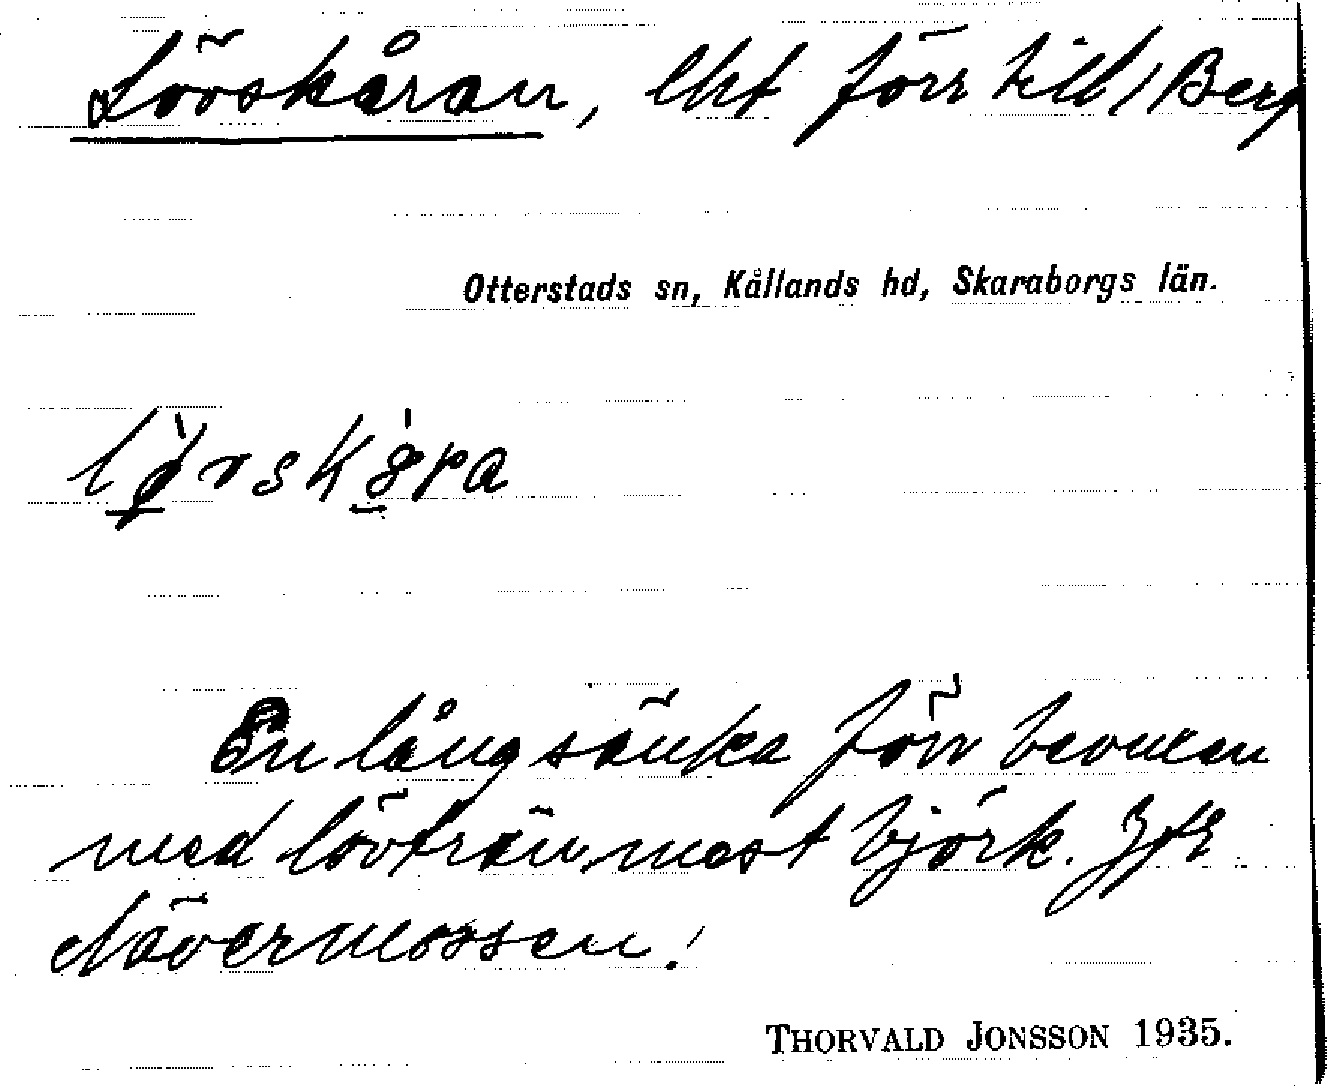 Lövskåran, lht förr till Berg
Otterstads sn, Kållands hd, Skaraborgs län.
En lång sänka förr bevuxen
med lövträn, mest björk. Jfr
Nävermossen!
THORVALD JONSSON 1935.